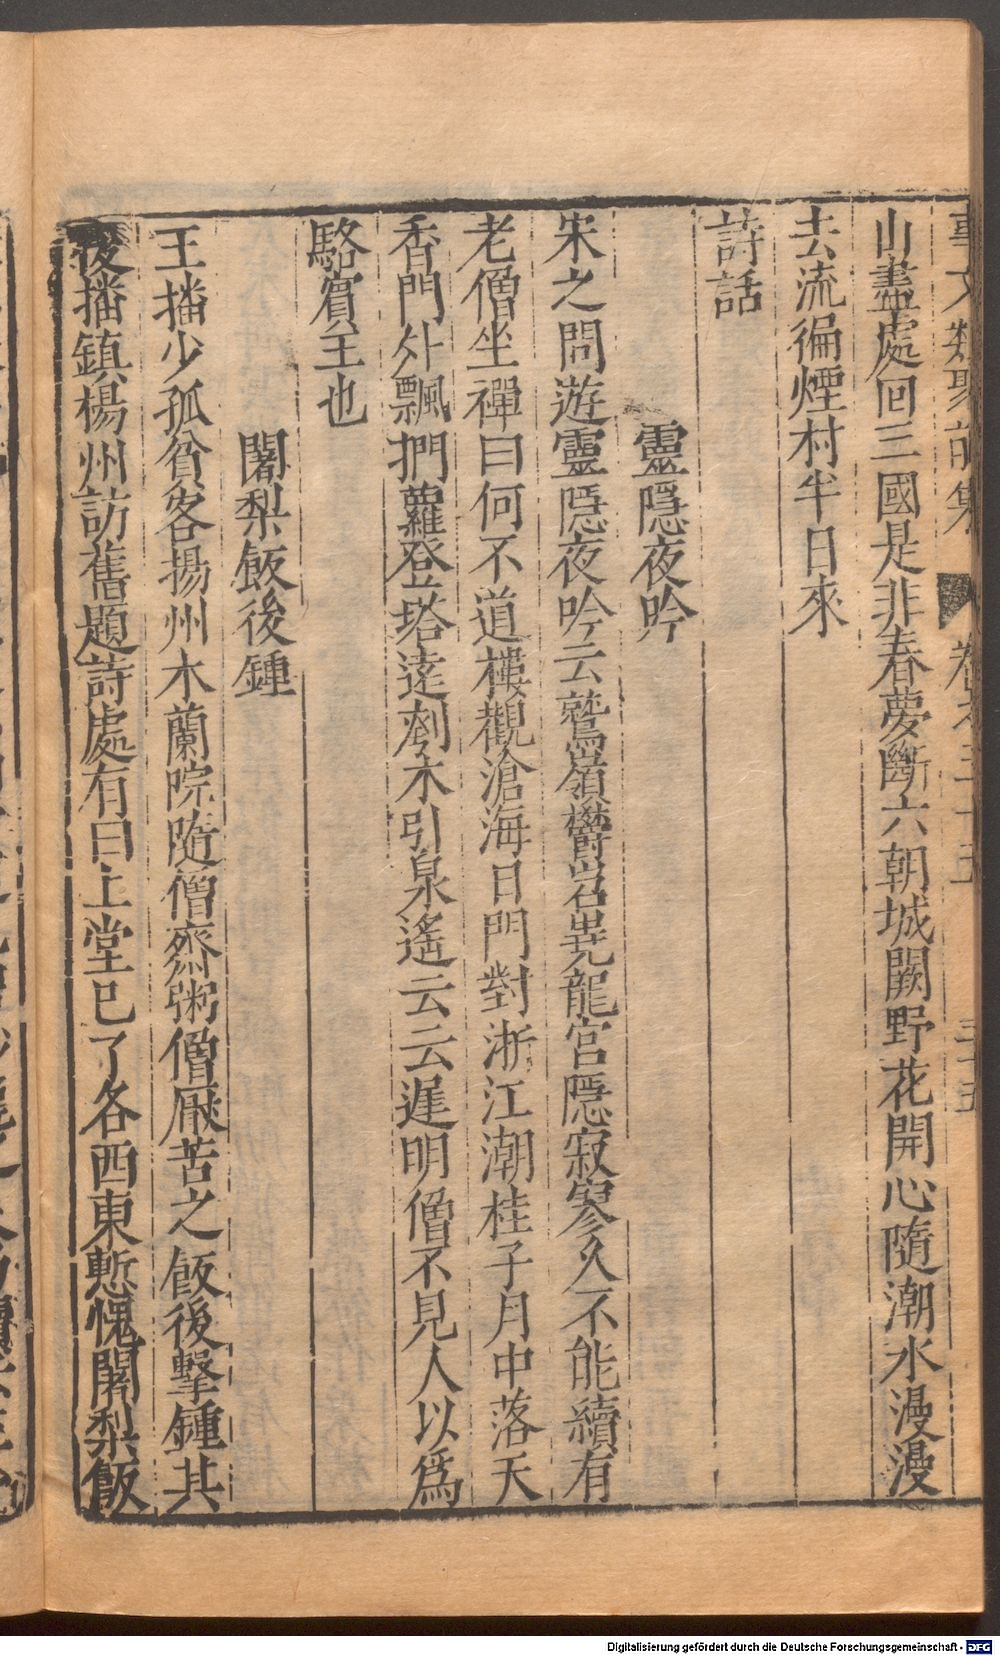 事文類聚前集 卷之三十五 三十五
山盡處回三國是非春夢斷六朝城闕野花開心隨潮水漫漫
去流徧煙村半日來
詩話
靈隱夜吟
宋之問遊靈隱夜吟云鷲嶺欝岧嶤龍宮隱寂寥久不能續有
老僧坐禪曰何不道樓觀滄海日門對浙江潮桂子月中落天
香門外飄捫蘿登塔遠刳木引泉遙云云遲明僧不見人以爲
駱賓王也
闍梨飯後鍾
王播少孤貧客揚州木蘭院隨僧齋粥僧厭苦之飯後擊鍾其
後播鎮楊州訪舊題詩處有曰上堂已了各西東慙愧闍梨飯
Digitalisierung gefördert durch die Deutsche Forschungsgemeinschaft - DFG